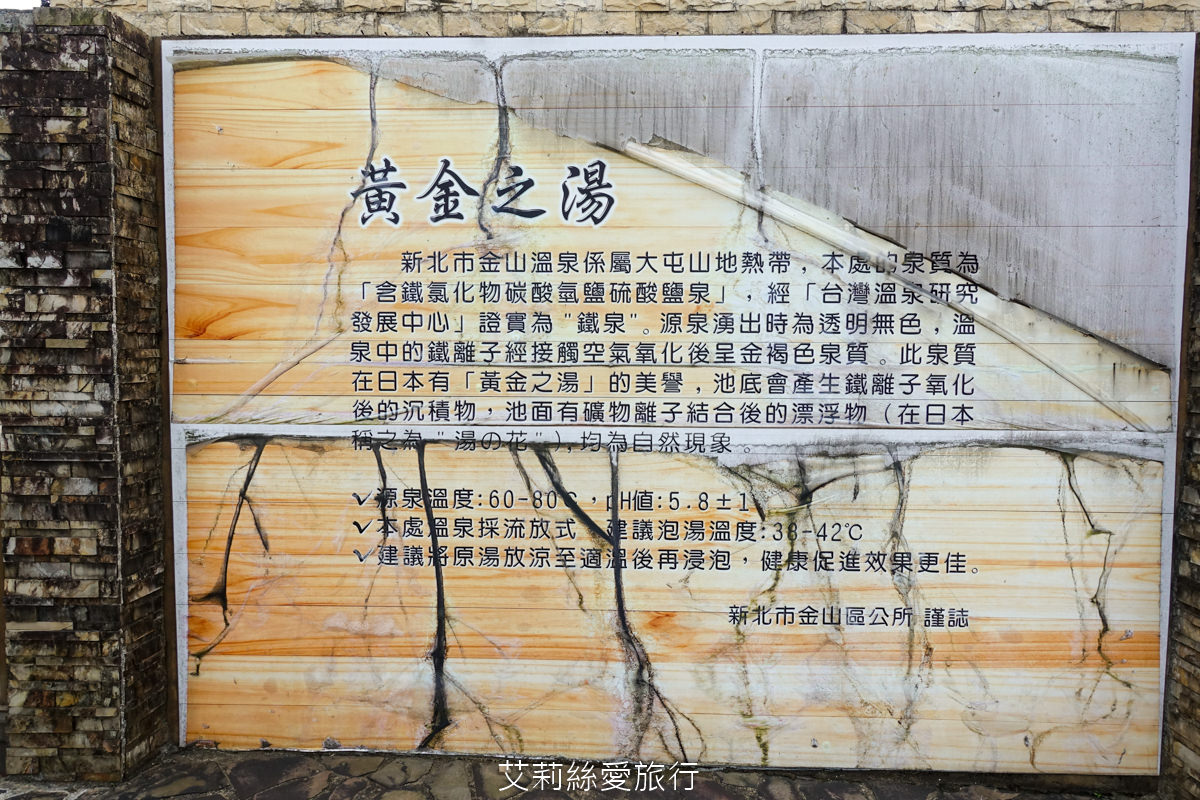 黃金之湯
新北市金山溫泉係屬大屯山地熱帶，本處的泉質為
「含鐵氯化物碳酸氫鹽硫酸鹽泉」，經「台灣溫泉研究
發展中心」證實為"鐵泉"。源泉湧出時為透明無色，溫
泉中的鐵離子經接觸空氣氧化後呈金褐色泉質。此泉質
在日本有「黃金之湯」的美譽，池底會產生鐵離子氧化
後的沉積物，池面有礦物離子結合後的漂浮物（在日本
稱之為"湯の花"），均為自然現象。
✓源泉溫度:60-80℃，pH值:5.8±1
✓本處溫泉採流放式　建議泡湯溫度:38-42℃
✓建議將原湯放涼至適溫後再浸泡，健康促進效果更佳。
新北市金山區公所 謹誌
艾莉絲愛旅行